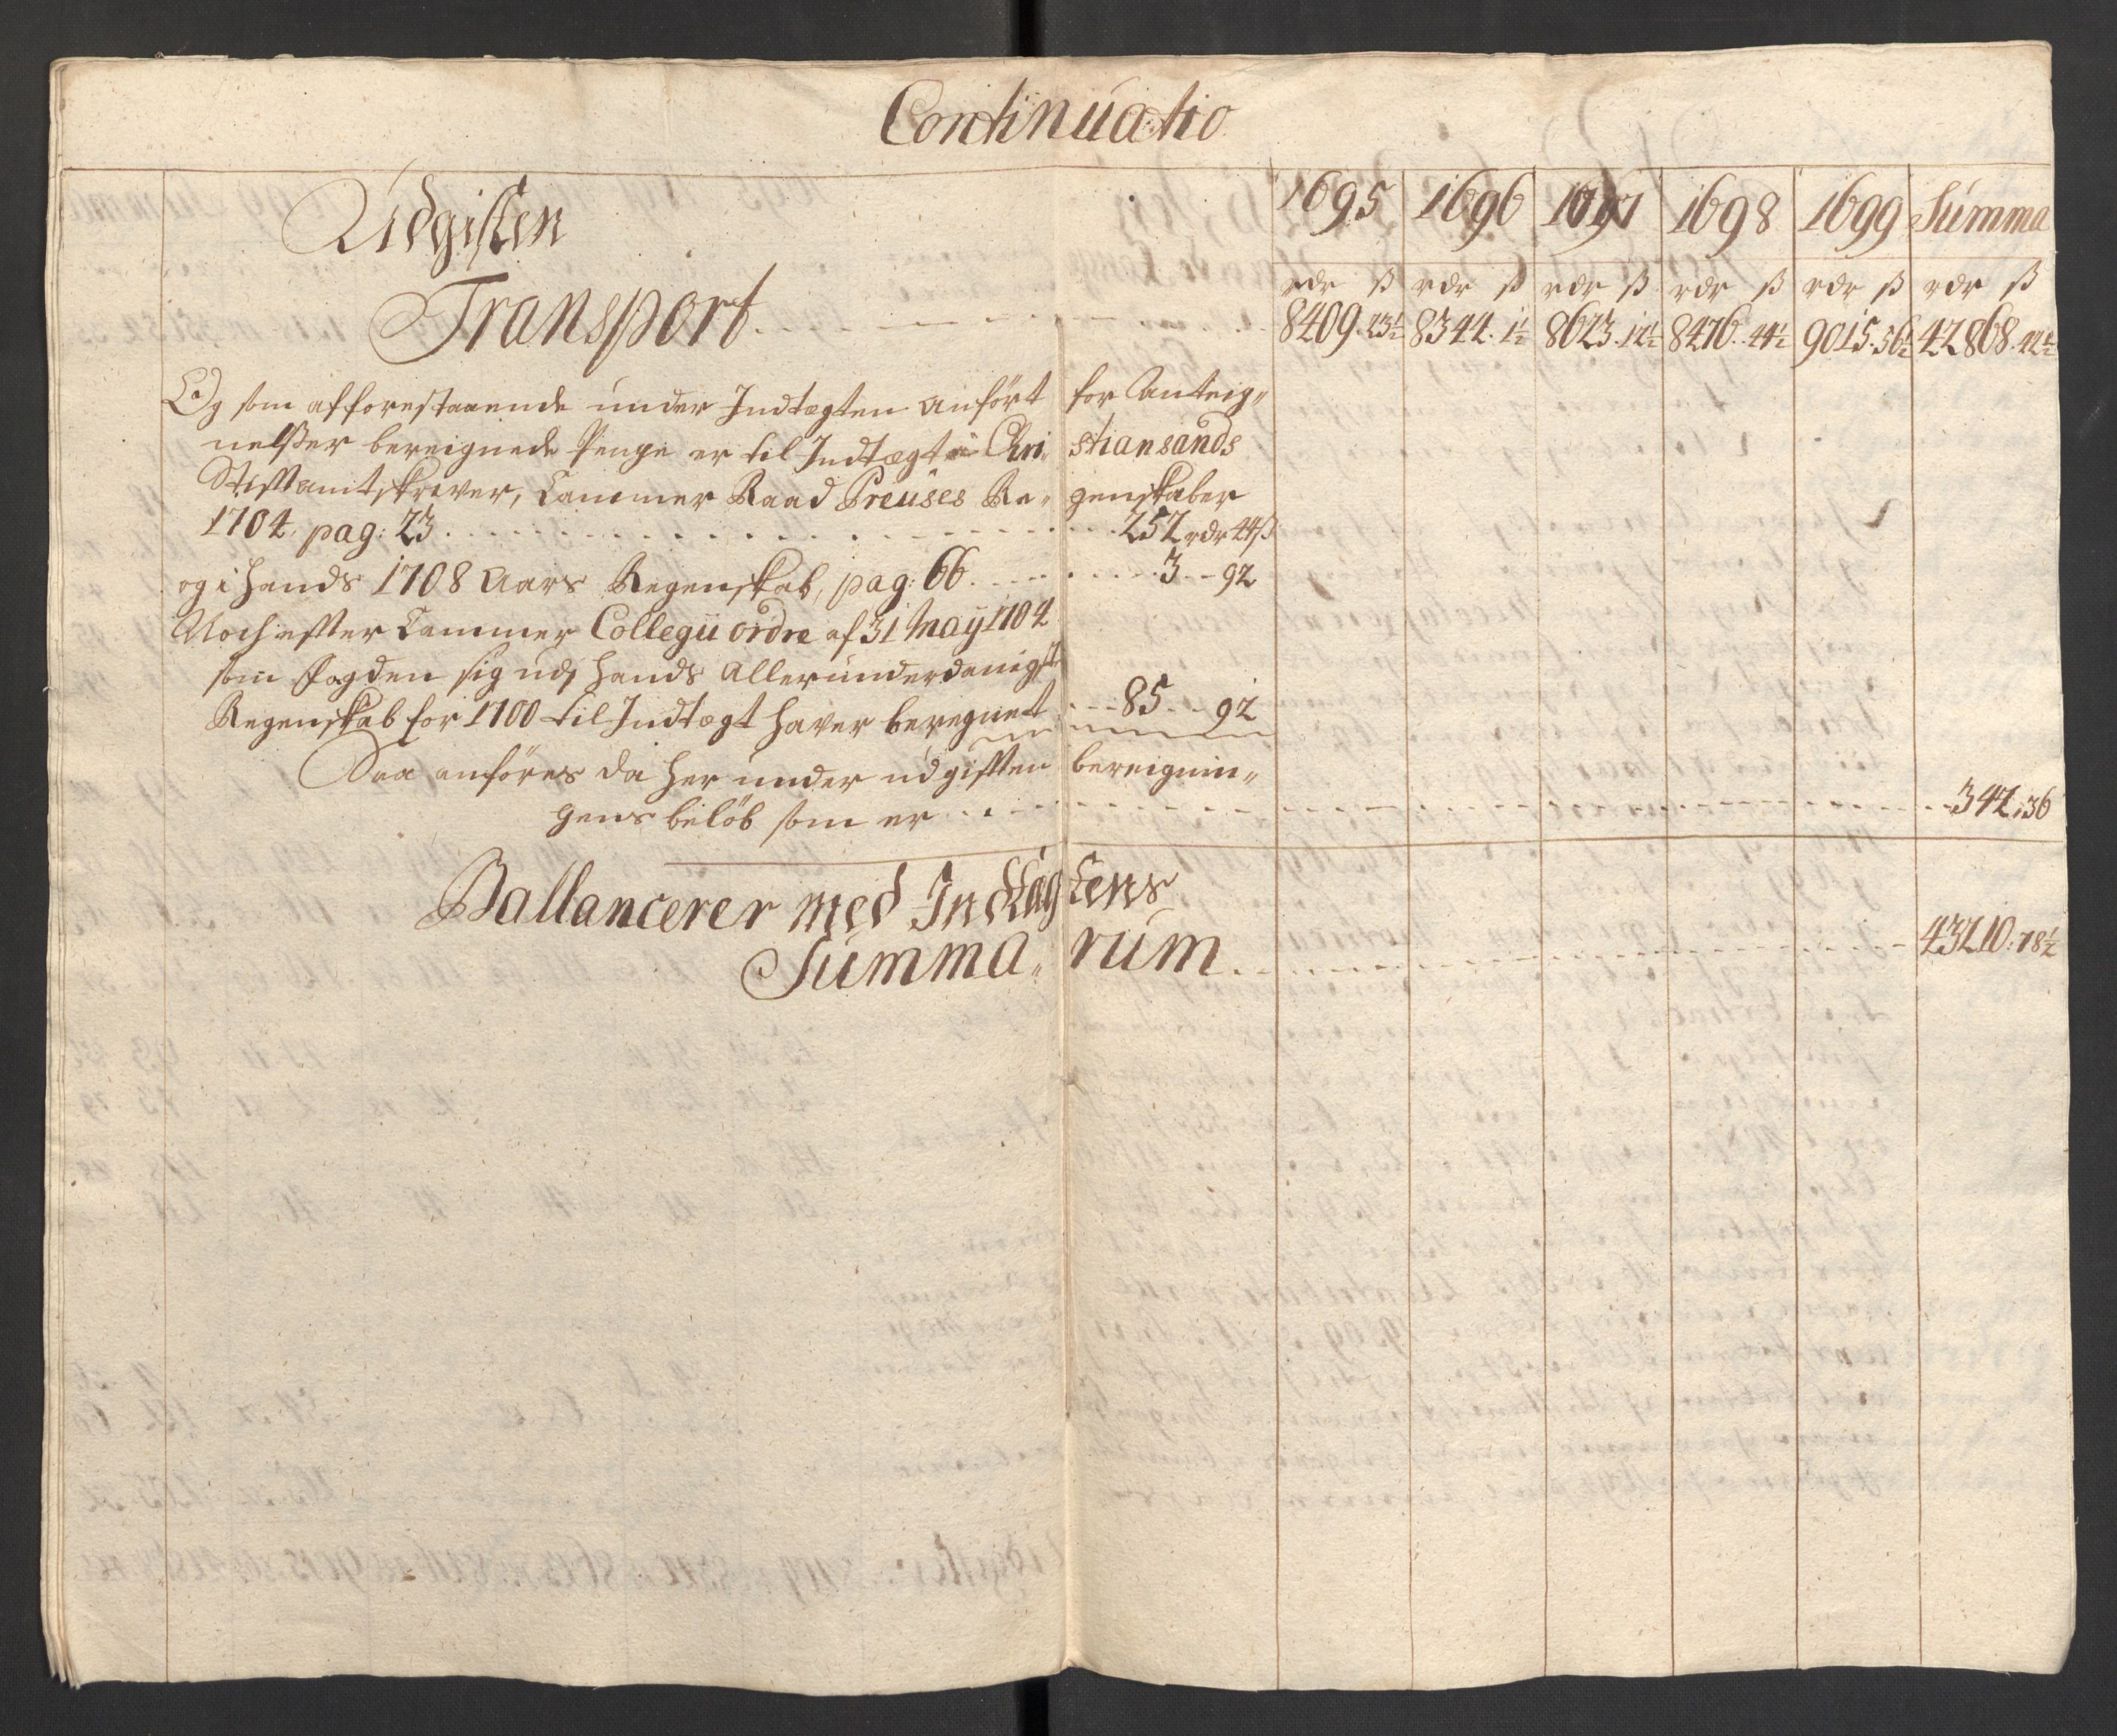 Continuatio
Udgiften
1695 1696 1697 1698 1699 Summa
rdr ß rdr ß rdr ß rdr ß rdr ß rdr ß
Transport 8409. 23½ 8344. 1½ 8623. 12½ 8476. 44½ 9015. 56½ 42868. 42½
Og som afforestaaende under Indtægten anført for Anteig„
nelsser bereignede Penge er til Indtægt i Chri„ stiansands
Stiftamtskriver, Cammer Raad Preuses Re„ genskaber
1704. pag: 23 . . . 252 rdr 44 ß
og i hands 1708 Aars Regenskab, pag: 66 . . . 3 - 92
Noch efter Cammer Collegii ordre af 31 Maij 1704
som fogden sig udj hands allerunderdanigste
Regenskab for 1700 til Indtægt haver beregnet . . . 85 . . 92
Saa anføres da her under udgiften bereignin„
gens beløb som er . . . 342. 36
Ballancerer med Indtægtens
Summa„ rum . . . 43210: 78½